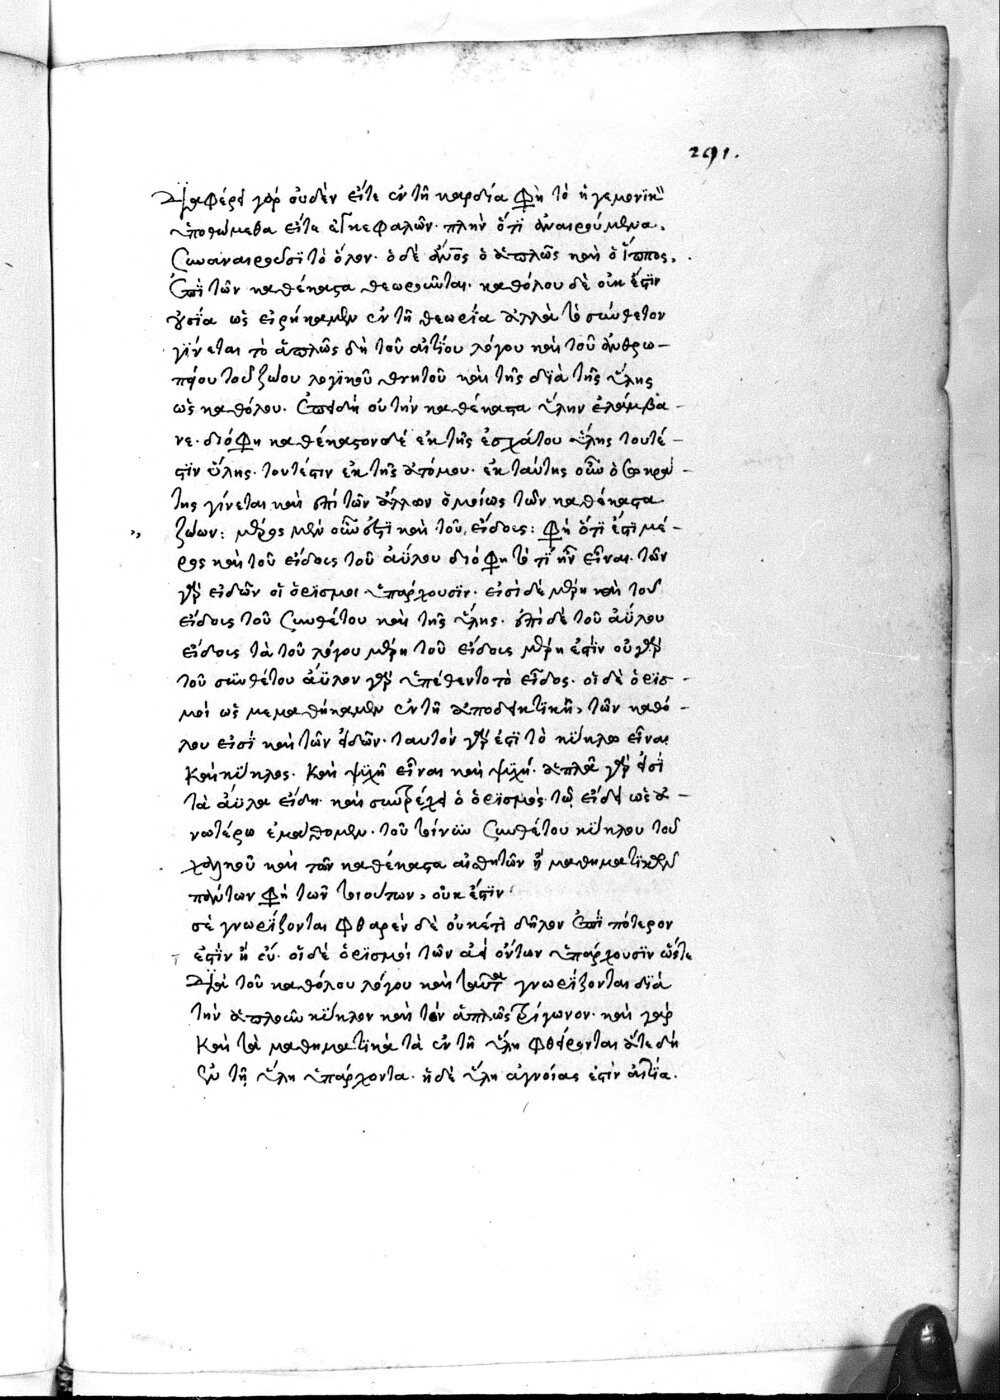 291.
Διαφέρει γὰρ οὐδὲν εἴτε ἐν τῇ καρδία φη τὸ ἡγεμονικὸν
ὑποθώμεθα εἴτε ἐγκεφαλῶ· πλὴν ὅτι ἀναιρούμενα,
συναναιροῦσι τὸ ὅλον· ὁ δὲ ἄνος ὁ ἁπλῶς καὶ ὁ ἵππος,
ἐπὶ τῶν καθέκαστα θεωροῦνται· καθόλου δὲ οὐκ ἔστιν
οὐσία ὡς εἰρήκαμεν ἐν τῇ θεωρία ἀλλὰ τὸ σύνθετον
γίνεται τὸ ἁπλῶς δὴ τοῦ αἰτίου λόγου καὶ τοῦ ἀνθρω-
πείου τοῦ ζώου λογικοῦ θνητοῦ καὶ τῆς διὰ τῆς ὕλης
ὡς καθόλου. ἐπειδὴ οὐ τὴν καθέκαστα ὕλην ἐλάμβα-
νε· διό φη καθέκαστον δὲ ἐκ τῆς ἐσχάτου ὕλης τουτέ-
στιν ὕλης· τουτέστιν ἐκ τῆς ἀτόμου· ἐκ ταύτης οὖν ὁ σωκρά-
της γίνεται καὶ ἐπὶ τῶν ἄλλων ὁμοίως τῶν καθέκαστα
ζώων: μέρος μὲν οὖν ἐστὶ καὶ τοῦ εἴδους: φη ὅτι ἐστὶ μέ-
ρος καὶ τοῦ εἴδους τοῦ ἀΰλου διό φη τὸ τί ἦν εἶναι· τῶν
γὰρ εἰδῶν οἱ ὁρισμοὶ ὑπάρχουσιν· εἰσὶ δὲ μέρη καὶ τοῦ
εἴδους τοῦ συνθέτου καὶ τῆς ὕλης· ἐπὶ δὲ τοῦ ἀΰλου
εἴδους τὰ τοῦ λόγου μέρη τοῦ εἴδους μέρη ἐστὶν οὐ γὰρ
τοῦ συνθέτου ἄϋλον γὰρ ὑπέθεντο τὸ εἶδος· οἱ δὲ ὁρισ-
μοὶ ὡς μεμαθήκαμεν ἐν τῇ ἀποδεικτικῇ, τῶν καθό-
λου εἰσὶ καὶ τῶν εἰδῶν· ταυτὸν γάρ ἐστι τὸ κύκλω εἶναι
καὶ κύκλος· καὶ ψυχῆ εἶναι καὶ ψυχή· ἁπλᾶ γὰρ εἰσὶ
τὰ ἄϋλα εἴδη· καὶ συντρέχει ὁ ὁρισμὸς τῶ εἴδει ὡς ἀ-
νωτέρω ἐμάθομεν· τοῦ τοίνυν συνθέτου κύκλου τοῦ
χαλκοῦ καὶ τῶν καθέκαστα αἰσθητῶν ἢ μαθηματικῶν
πολύτων φη τῶν τοιούτων, οὐκ ἔστιν
σὲ γνωρίζονται φθαρὲν δὲ οὐκέτι δῆλον ἐπὶ πότερον
ἐστὶν ἢ οὔ· οἱ δὲ ὁρισμοὶ τῶν ἀεὶ ὄντων ὑπάρχουσιν ὥστε
διὰ τοῦ καθόλου λόγου καὶ ταῦτα γνωρίζονται διὰ
τὴν ἁπλοῦν κύκλον καὶ τὸν ἁπλῶς τρίγωνον· καὶ γὰρ
καὶ τὰ μαθηματικὰ τὰ ἐν τῇ ὕλη φθείρονται ἅτε δὴ
ἐν τῇ ὕλη ὑπάρχοντα· ἡ δὲ ὕλη ἀγνοίας ἐστὶν αἰτία.